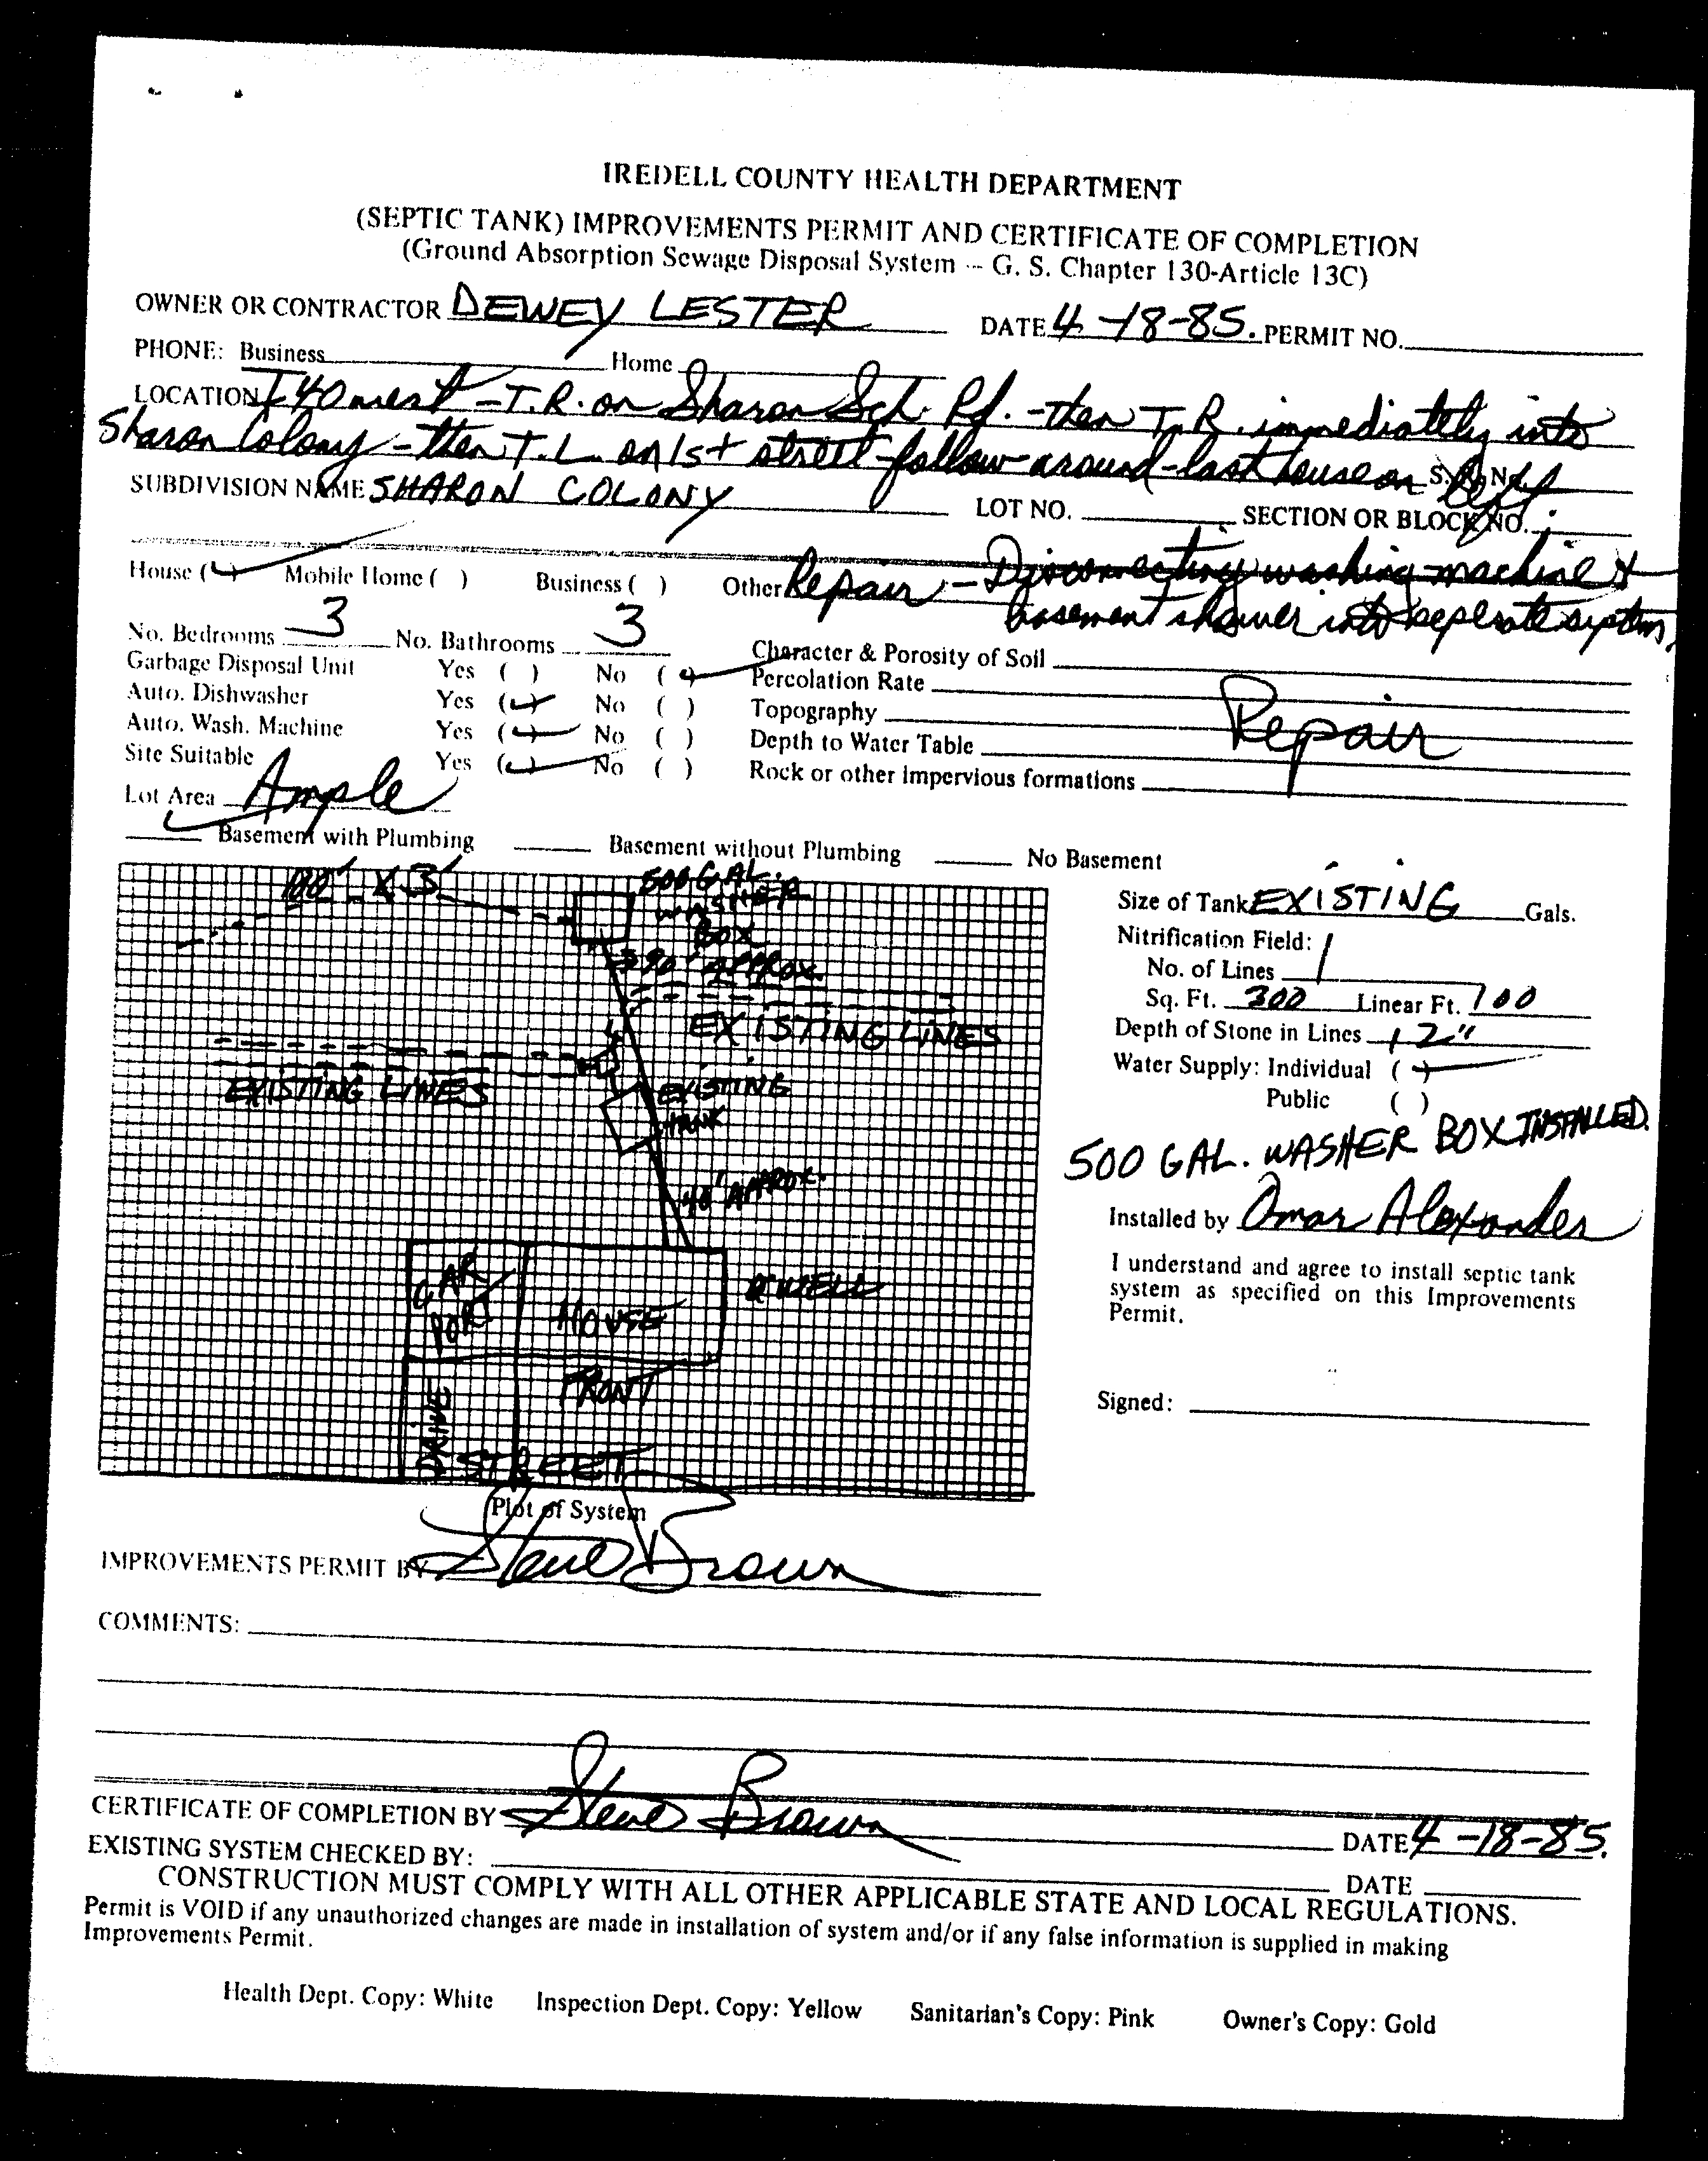 IREDELL COUNTY HEALTH DEPARTMENT
(SEPTIC TANK) IMPROVEMENTS PERMIT AND CERTIFICATE OF COMPLETION
(Ground Absorption Sewage Disposal System -- G. S. Chapter 130-Article 13C)
OWNER OR CONTRACTOR DEWEY LESTER DATE 4-18-85. PERMIT NO.
PHONE: Business Home
LOCATION I-40 west - T.R. on Sharon Sch. Rd. - then T.R. immediately into
Sharon Colony - then T.L. on 1st street - follow around - last house on left. S.R. No.
SUBDIVISION NAME SHARON COLONY LOT NO. SECTION OR BLOCK NO.
House (✓) Mobile Home ( ) Business ( ) Other Repair - Disconnecting washing machine &
basement shower into seperate system.
No. Bedrooms 3 No. Bathrooms 3
Character & Porosity of Soil
Garbage Disposal Unit Yes ( ) No (✓) Percolation Rate
Auto. Dishwasher Yes (✓) No ( ) Topography Repair
Auto. Wash. Machine Yes (✓) No ( ) Depth to Water Table
Site Suitable Yes (✓) No ( ) Rock or other impervious formations
Lot Area Ample
✓ Basement with Plumbing Basement without Plumbing No Basement
100' X 3'
500 GAL.
WASHER
BOX
90' APPROX.
EXISTING LINES
EXISTING LINES
EXISTING
TANK
40' APPROX.
CAR
PORT
HOUSE
WELL
FRONT
DRIVE
STREET
Plot of System
Size of Tank EXISTING Gals.
Nitrification Field:
No. of Lines 1
Sq. Ft. 300 Linear Ft. 100
Depth of Stone in Lines 12"
Water Supply: Individual (✓)
Public ( )
500 GAL. WASHER BOX INSTALLED.
Installed by Omar Alexander
I understand and agree to install septic tank
system as specified on this Improvements
Permit.
Signed:
IMPROVEMENTS PERMIT BY Steve Brown
COMMENTS:
CERTIFICATE OF COMPLETION BY Steve Brown DATE 4-18-85.
EXISTING SYSTEM CHECKED BY: DATE
CONSTRUCTION MUST COMPLY WITH ALL OTHER APPLICABLE STATE AND LOCAL REGULATIONS.
Permit is VOID if any unauthorized changes are made in installation of system and/or if any false information is supplied in making
Improvements Permit.
Health Dept. Copy: White Inspection Dept. Copy: Yellow Sanitarian's Copy: Pink Owner's Copy: Gold